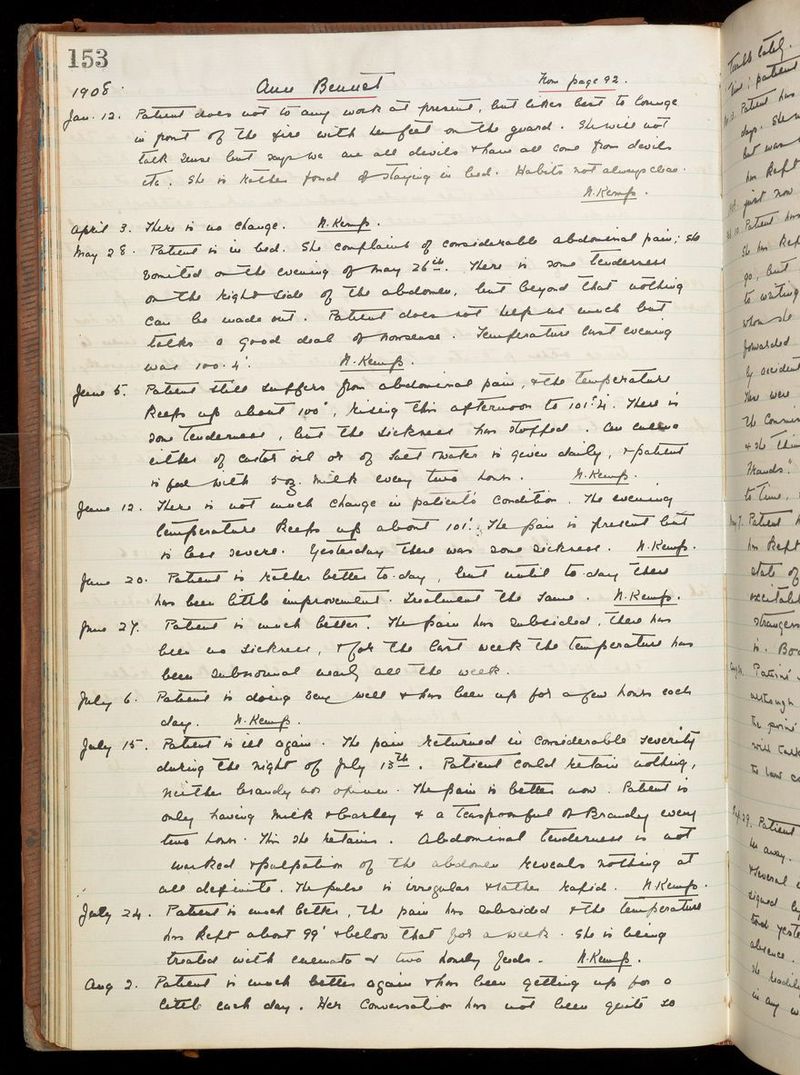 153
1908. Ann Bennet from page 92.
Jan. 12. Patient does not do any work at present, but likes best to lounge
in front of the fire with her feet on the guard. She will not
talk sense but says we are all devils & have all come from devils
etc. She is rather fond of staying in bed. Habits not always clean.
N. Kemp.
April 3. There is no change. N. Kemp.
May 28. Patient is in bed. She complains of considerable abdominal pain; she
vomited on the evening of May 26th. There is some tenderness
on the right side of the abdomen, but beyond that nothing
can be made out. Patient does not help us much but
talks a good deal of nonsense. Temperature last evening
was 100.4°. N. Kemp.
June 5. Patient still suffers from abdominal pain, & the temperature
keeps up about 100°, rising this afternoon to 101°.4. There is
some tenderness, but the sickness has stopped. An enema
either of castor oil or of salt & water is given daily, & patient
is fed with 5 oz. milk every two hours. N. Kemp.
June 12. There is not much change in patient's condition. The evening
temperature keeps up about 101°. The pain is present but
is less severe. Yesterday there was some sickness. N. Kemp.
June 20. Patient is rather better to-day, but until to-day there
has been little improvement. Treatment the same. N. Kemp.
June 27. Patient is much better. The pain has subsided, there has
been no sickness, & for the last week the temperature has
been subnormal nearly all the week.
July 6. Patient is doing very well & has been up for a few hours each
day. N. Kemp.
July 15. Patient is ill again. The pain returned in considerable severity
during the night of July 13th. Patient could retain nothing,
neither brandy nor opium. The pain is better now. Patient is
only having milk & barley & a teaspoonful of Brandy every
two hours. This she retains. Abdominal tenderness is not
marked & palpation of the abdomen reveals nothing at
all definite. The pulse is irregular & rather rapid. N Kemp.
July 24. Patient is much better, the pain has subsided & the temperature
has kept about 99° & below that for a week. She is being
treated with enemata & two hourly feeds. N. Kemp.
Aug 2. Patient is much better again & has been getting up for a
little each day. Her conversation has not been quite so